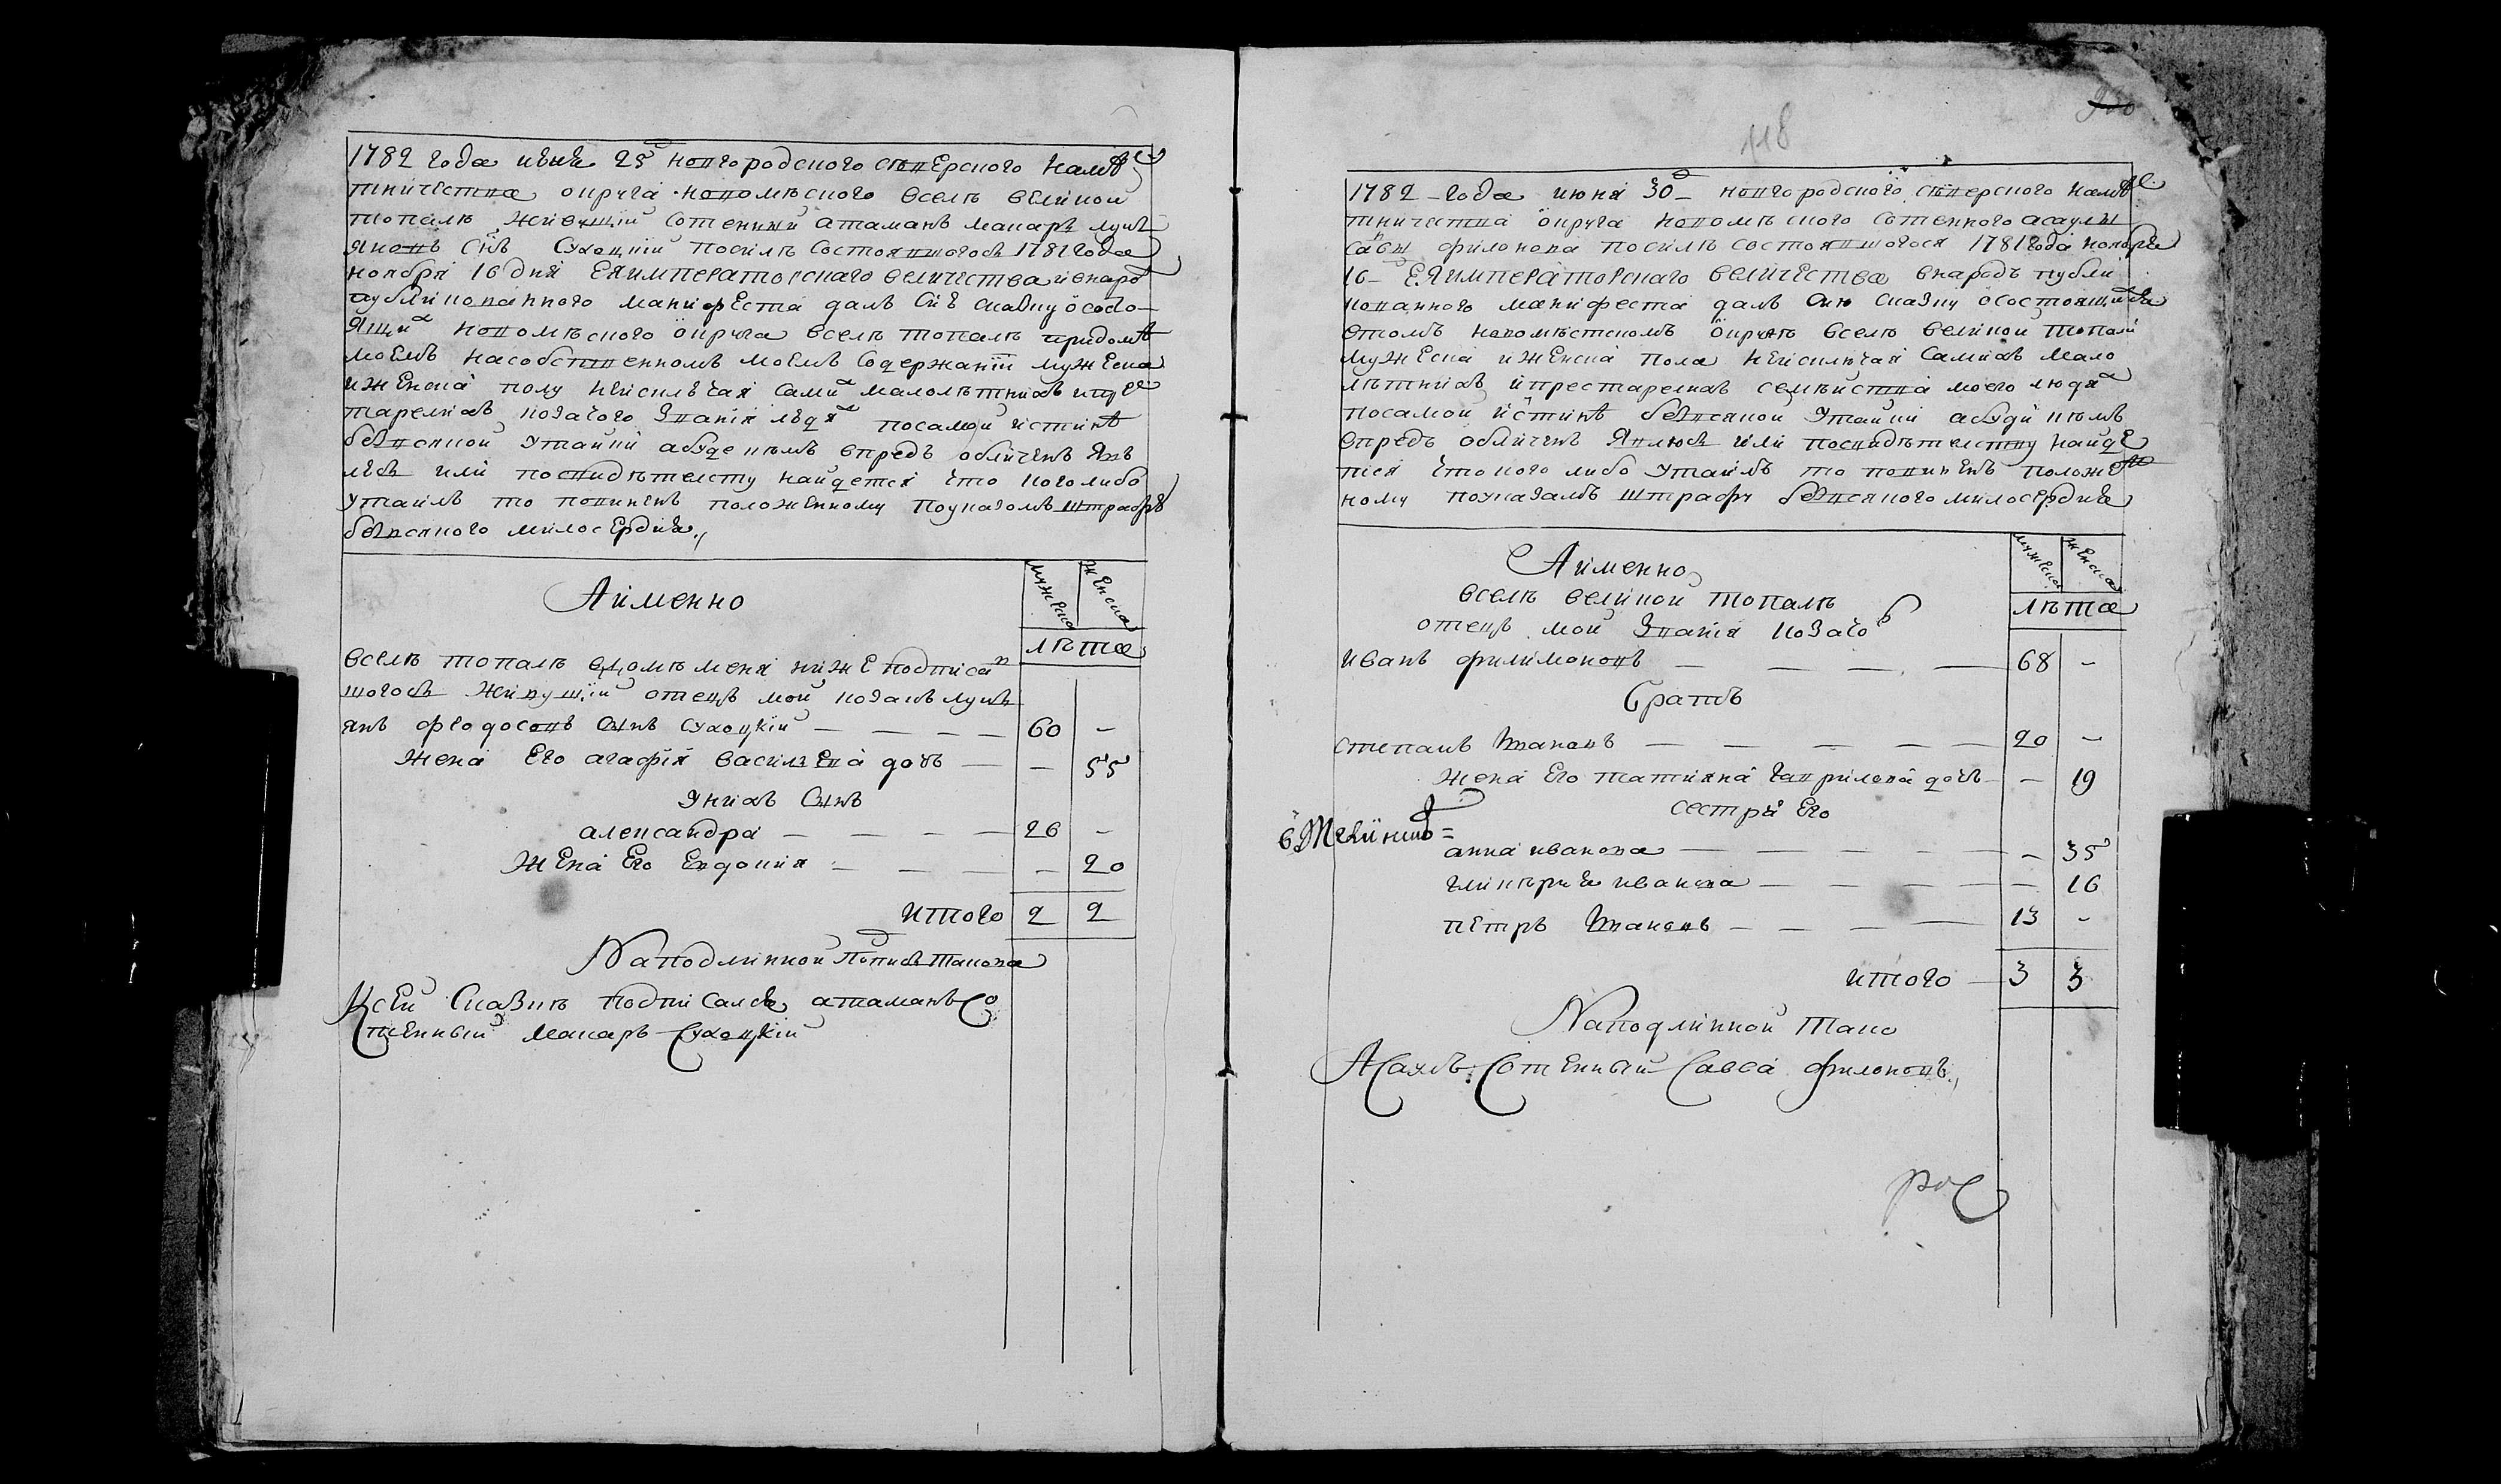 1782 года июня 25 д новгородского северского намѣс
тничества округа новомѣского вселѣ великой
топалѣ живущїй сотенный атаманъ макаръ лукь
яновъ снъ сухоцкїй посилѣ состоявшогося 1781 года
ноября 16 дня Ея императорскаго величества и внаро
публикованного манифеста далъ сию сказку о состо
ящих новомѣского округа вселѣ топалѣ придомѣ
моемъ насобственномъ моемъ содержанїи мужеска
и женска полу неисключая самих малолѣтнихъ и пре
тарелихъ козачого званїя людях посамой истинѣ
безвсякой утайки а буде кѣмъ впредь обличенъ явь
люся или посвидѣтелсту найдется что кого либо
утаилъ то повиненъ положенному поуказомъ штрафу
безвсякого милосердия.,
Аименно
мужеска
женска
лѣта
вселѣ топалѣ вдомѣ меня ниже подписав
шогося живущїй отецъ мой козакъ лукь
янъ феодосовъ сынъ сухоцкїй — — — — 60 —
жена его агафїя василева дочь — — 55
Унихъ сынъ
александра — — — — 26 —
жена его евдокия — — — — 20
итого 2 2
Наподлинной подпись такова
Ксей сказкѣ подписался атаманъ со
тенный макаръ сухоцкїй
118
1782 года июня 30 д новгородского северского намѣс
тничества округа новомѣского сотенного асаулы
савы филонова посилѣ состоявшогося 1781 года ноября
16 Ея императорского величества внародъ публи
кованного манифеста далъ сию сказку о состоящихъ
втомъ новомѣстскомъ округѣ вселѣ великой топали
мужеска и женска пола неисключая самихъ мало
лѣтнихъ и престарелихъ семѣйства моего людях
посамой истинѣ безвсякой утайки а буди кѣмъ
впредь обличенъ явлюся или посвидѣтелству найде
тся что кого либо утаилъ то повиненъ положе
ному поуказамъ штрафу безвсякого милосердия
Аименно
мужеска
женска
вселѣ великой топалѣ
лѣта
отецъ мой званїя козачо
иванъ филимоновъ — — — — 68 —
братъ
степанъ ивановъ — — — — — 20 —
жена его татияна гаврилова дочь — — 19
сестри его
анна иванова — — — — — 35
гликерия иванова — — — — 16
петръ ивановъ — — — — 13 —
итого — 3 3
Наподлинной тако
Асаулъ сотенный савва филоновъ.,